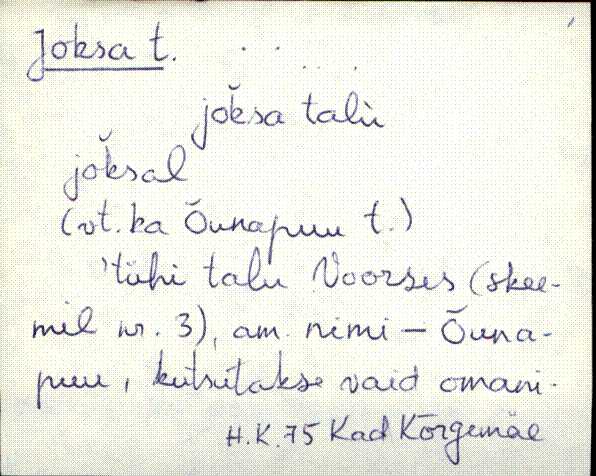 Joksa t.
jŏksa talù
jŏksal
(vt. ka Õunapuu t.)
'tühi talu Voorses (skee-
mil nr. 3), am. nimi – Õuna-
puu, kutsutakse vaid omani-
H.K. 75 Kad Kõrgemäe